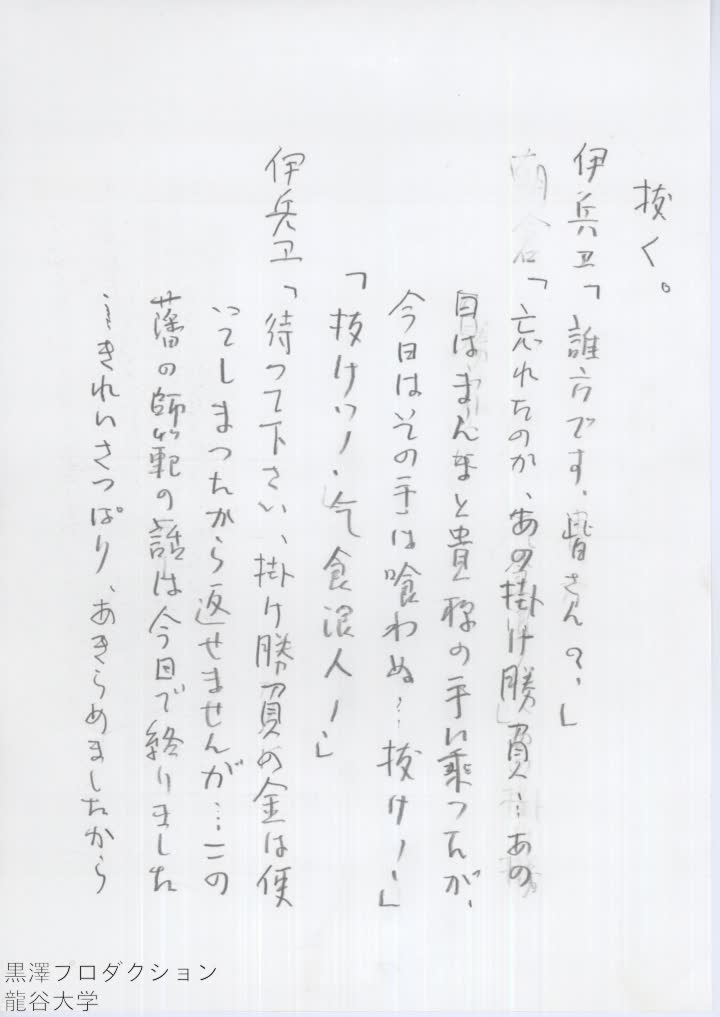 抜く。
伊兵卫「誰方です、皆さんの、」
朝倉「忘れたのか、あの掛け勝負…あの
日はまんまと貴様の手に乗つたが、
今日はその手は喰わぬ…抜け！」
「抜けッ！、乞食浪人！」
伊兵卫「待つて下さい、掛け勝負の金は使
いてしまつたから返せませんが…この
藩の師範の話は今日で終りました
…きれいさつぱり、あきらめましたから
黒澤プロダクション
龍谷大学